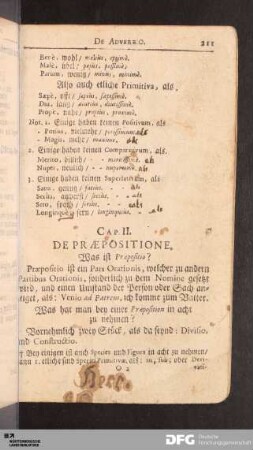 DE ADVERBIO. 211
Benè. wohl/ melius, optimè.
Malè. übel/ pejus, pessimè.
Parum. wenig/ minus, minimè.
Also auch etliche Primitiva, als.
Sæpè. offt/ sæpius, sæpissimè.
Diu. lang/ diutiùs, diutissimè.
Propè. nahe/ propius, proximè.
Not. 1. Einige haben keinen Positivum, als
- Potius, vielmehr/ potissimum. als
- Magis. mehr/ maximè. als
2. Einige haben keinen Comparativum. als
Merito, billich/ - - meritissimè. als
Nuper, neulich/ - - nuperrimè. als
3. Einige haben keinen Superlativum, als
Satis, genug/ satius. als
Secus, anderst/ secius. als
Sero, spath/ serius. als
Longinquè, fern/ longinquius. als
CAP. II.
DE PRÆPOSITIONE,
Was ist Præpositio?
Præpositio ist ein Pars Orationis, welcher zu andern
Partibus Orationis, sonderlich zu dem Nomine gesetzt
wird, und einen Umstand der Person oder Sach an-
zeiget, als: Venio ad Patrem, ich komme zum Vatter.
Was hat man bey einer Præposition in acht
zu nehmen?
Vornehmlich zwey Stück, als da seynd: Divisio,
und Constructio.
Bey einigem ist auch Species und Figura in acht zu nehmen/
dann 1. etliche sind Speciei Primitivæ, als: in, sub; oder Deri-
O 2
DFG Deutsche
Forschungsgemeinschaft